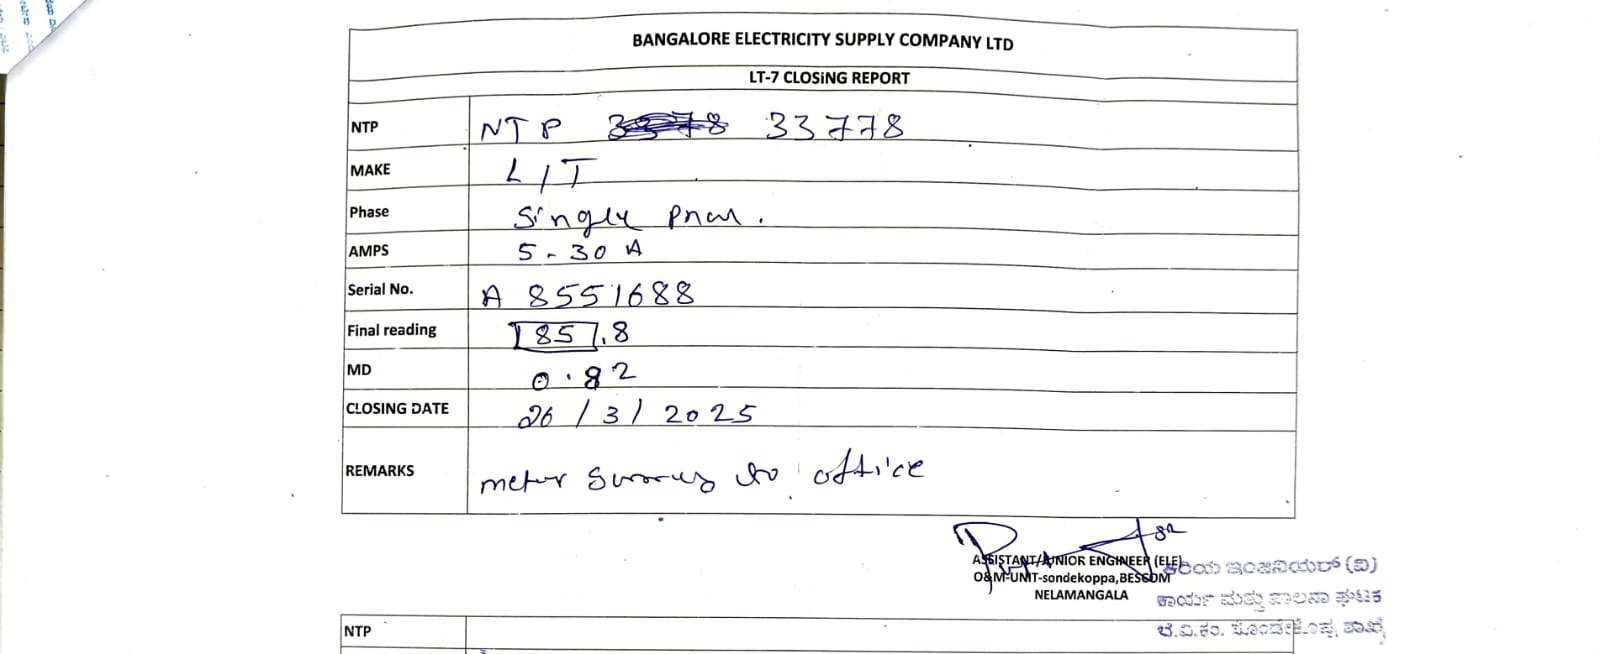 BANGALORE ELECTRICITY SUPPLY COMPANY LTD
LT-7 CLOSING REPORT
NTP NTP 33778
MAKE L/T
Phase Single
AMPS 5-30 A
Serial No. A 8551688
Final reading 1857.8
MD 0.82
CLOSING DATE 26/3/2025
REMARKS meter to office
ASSISTANT/JUNIOR ENGINEER (ELE)
O&M-UNIT-sondekoppa,BESCOM
NELAMANGALA
ಕಿರಿಯ ಇಂಜಿನಿಯರ್ (ವಿ)
ಕಾರ್ಯ ಮತ್ತು ಪಾಲನಾ ಘಟಕ
ಬೆ.ವಿ.ಕಂ. ಸೊಂಡೇಕೊಪ್ಪ ಶಾಖೆ
NTP